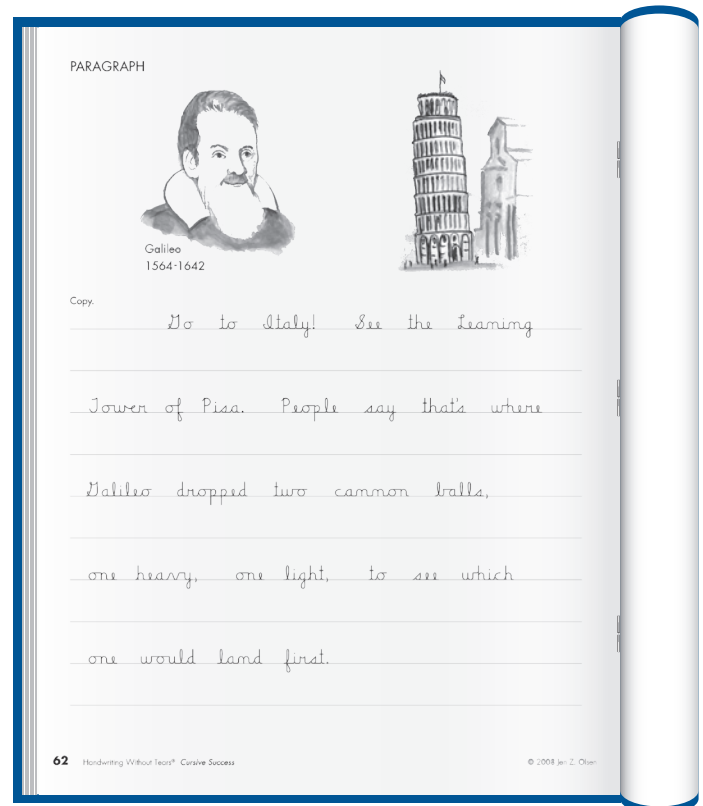 PARAGRAPH
Galileo
1564-1642
Copy.
Go to Italy! See the Leaning
Tower of Pisa. People say that's where
Galileo dropped two cannon balls,
one heavy, one light, to see which
one would land first.
62 Handwriting Without Tears® Cursive Success © 2008 Jan Z. Olsen